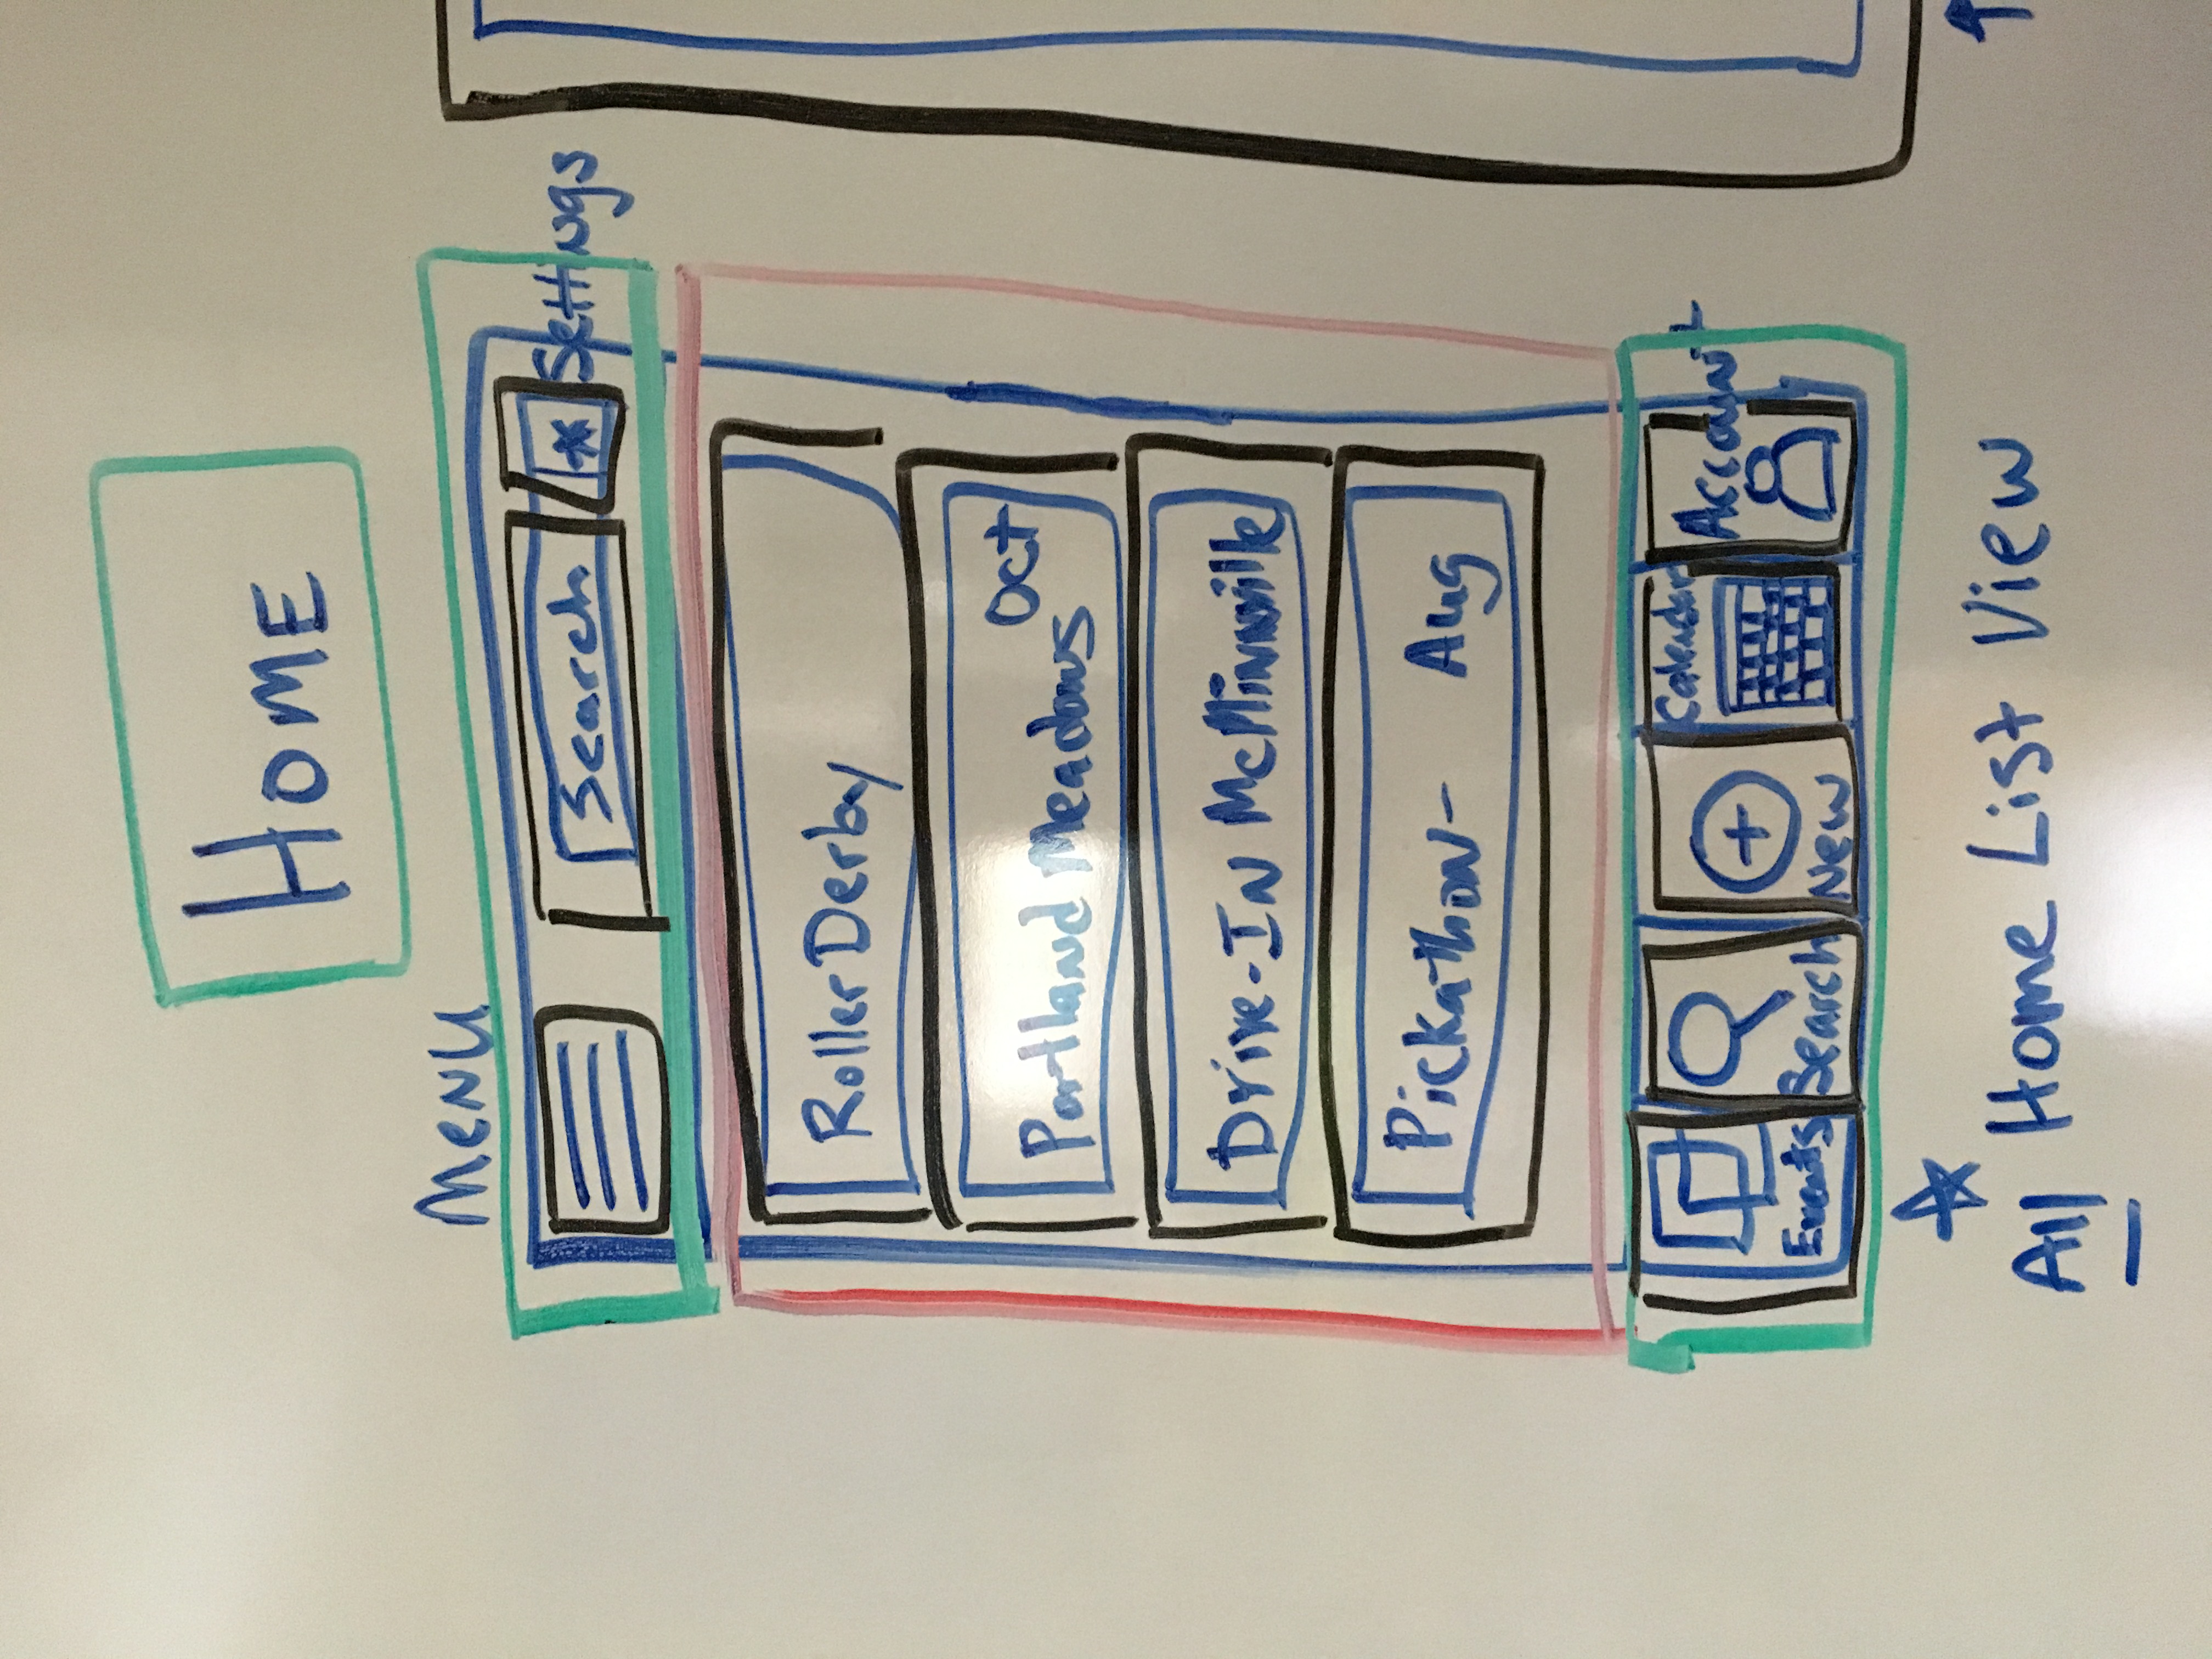 HOME
MENU
Search
Settings
Roller Derby
Oct
Portland Meadows
Drive-In McMinnville
Pickathon- Aug
Events
Search
New
Calendar
Account
All Home List View